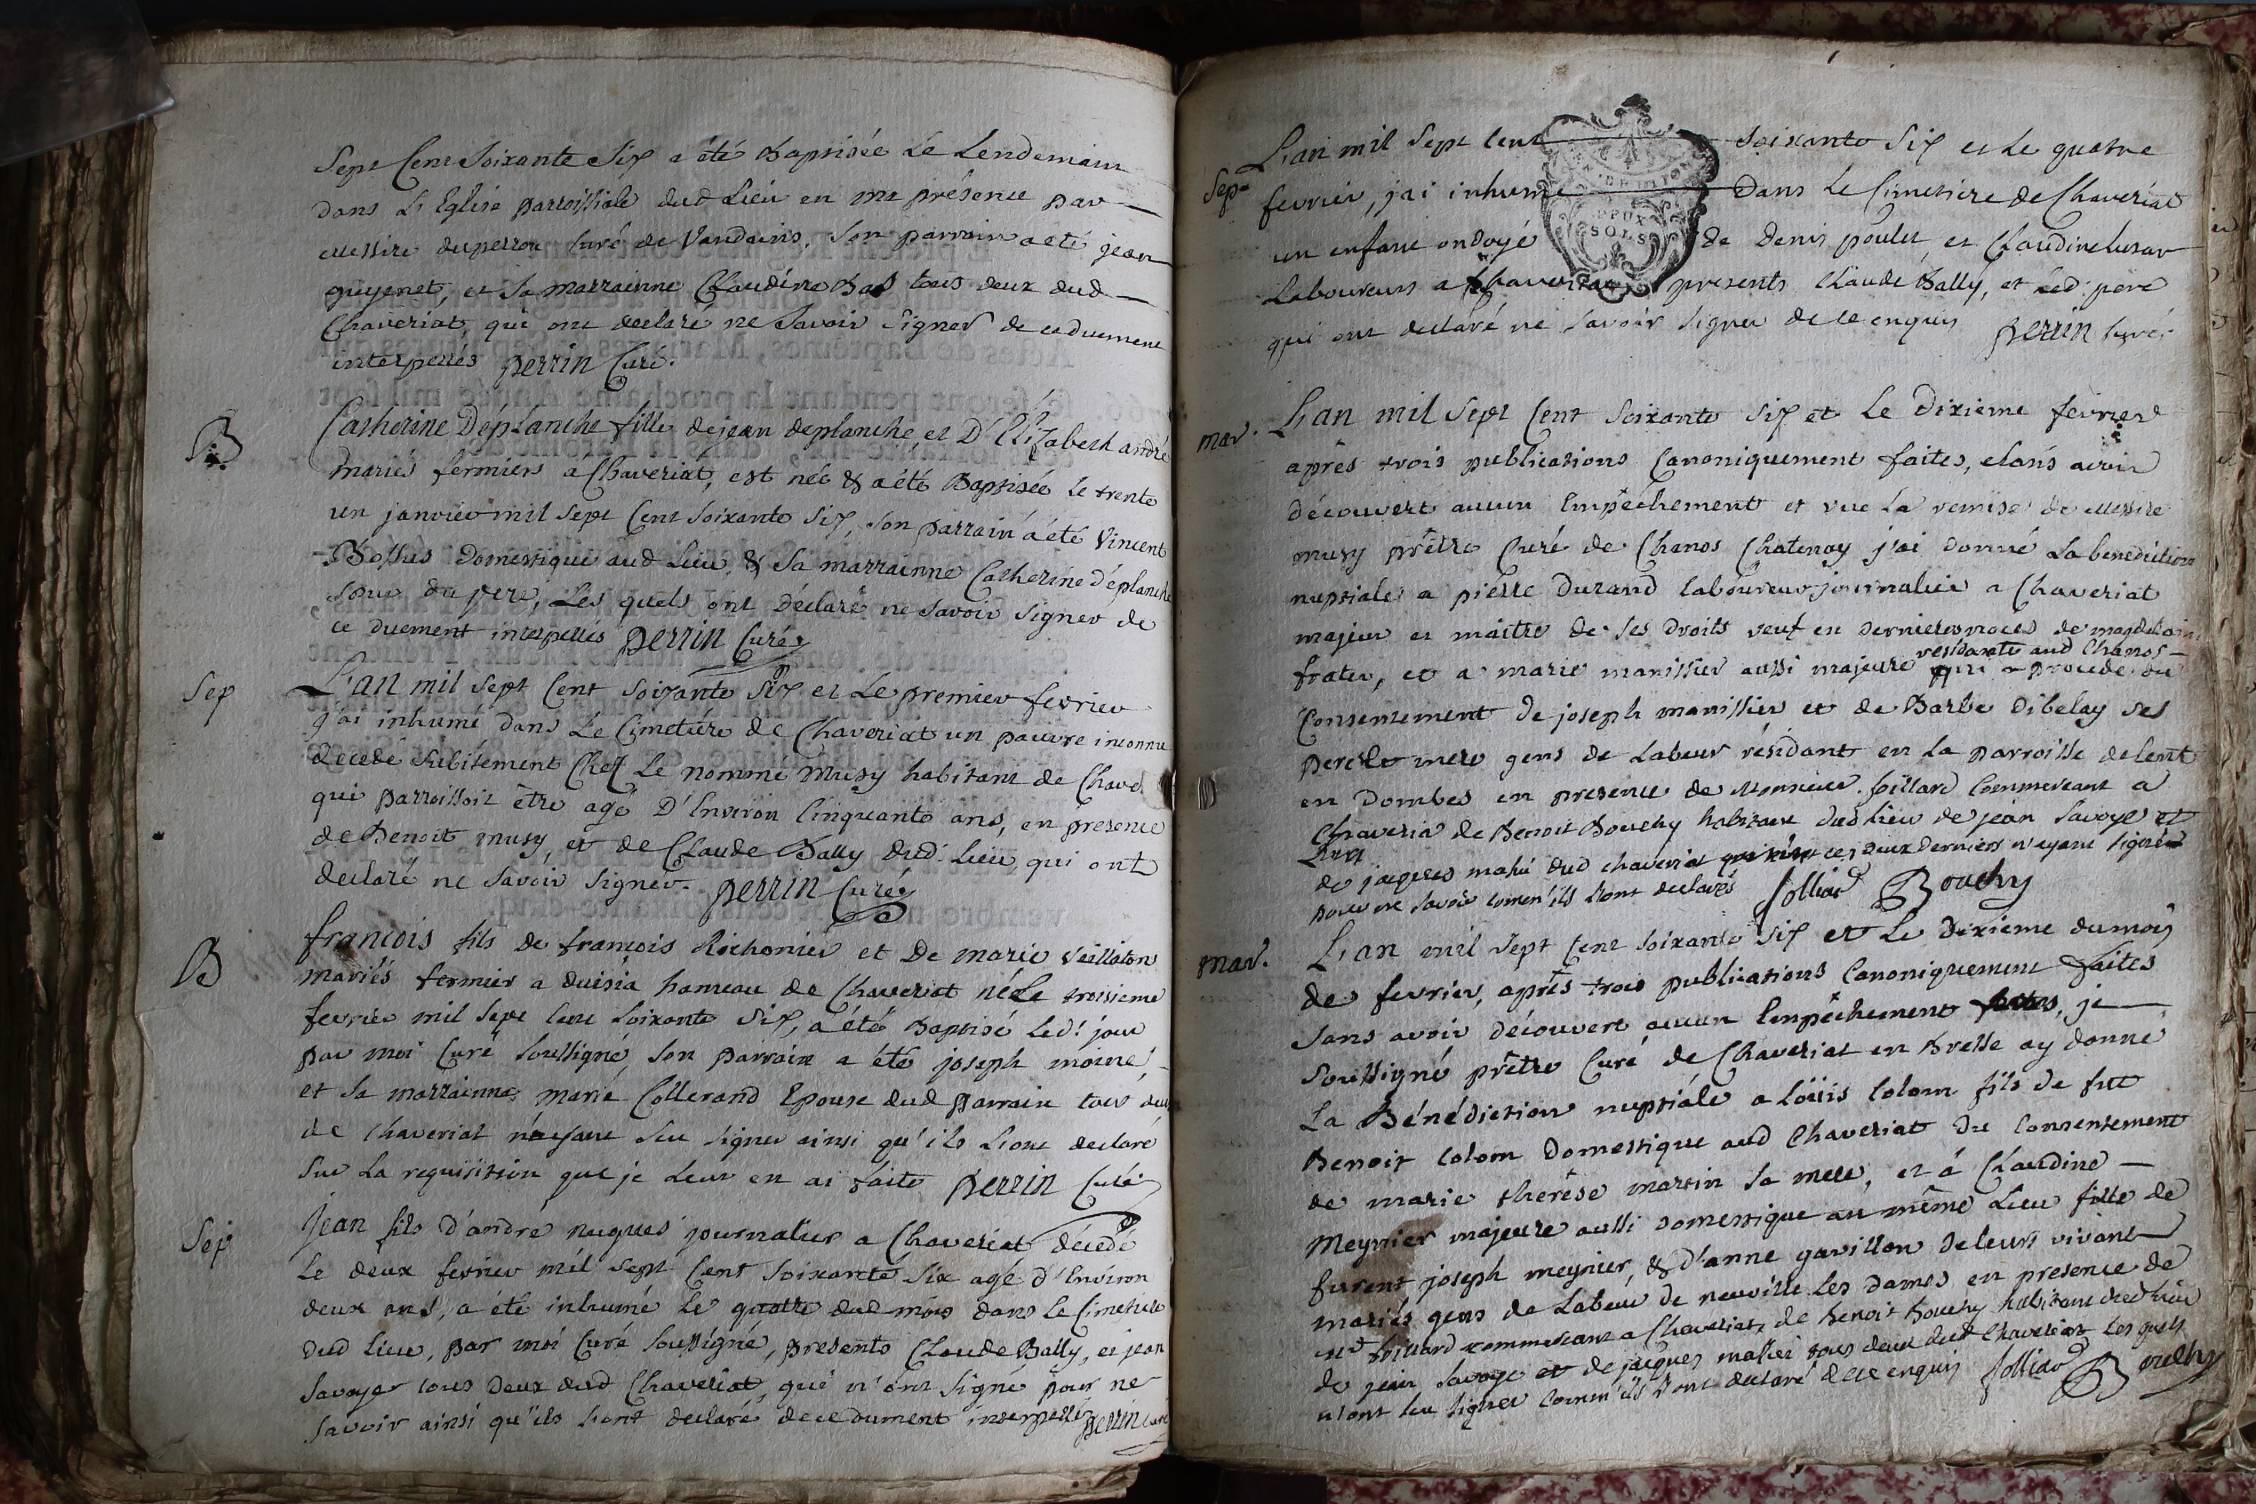 Sept Cent Soixante Six a été Baptisée Le Lendemain
dans L'Eglise parroissiale dud Lieu en ma présence par
Messire duperron Curé de Vandeins, Son parrain a eté jean
guyenet, et Sa marrainne Claudine Bas tous deux dud
Chaveriat, qui ont declaré ne Savoir Signer de ce duement
interpellés perrin Curé.
B
Catherine Déplanche fille de jean deplanche, et D'Elizabeth andré
mariés fermiers a Chaveriat, est née & a été Baptisée Le trente
un janvier mil Sept Cent Soixante Six, Son parrain a été Vincent
Bossus Domestique aud Lieu, & Sa marrainne Catherine déplanche
Soeur du pere, Les quels ont Déclaré ne Savoir Signer de
ce Duement interpellés perrin Curé
Sep
L'an mil Sept Cent Soixante Six et Le premier fevrier
j'ai inhumé dans Le Cimetiére de Chaveriat un pauvre inconnu
decedé Subitement Chez Le nommé Musy habitant de Chave
qui parroissoit être agé D'Environ Cinquante ans, en presence
de Benoit musy, et de Claude Bally dud: Lieu, qui ont
declaré ne Savoir Signer. perrin Curé
B
francois fils de francois Rochonier et De marie Veillaton
mariés fermier a duisia hameau de Chaveriat né Le troisieme
fevrier mil Sept Cent Soixante Six, a été Baptisé Led: jour
par moi Curé Soussigné Son parrain a été joseph moine,
et Sa marrainne marie Collerand Epouse dud parrain tous deux
de Chaveriat n'ayant Seu Signer ainsi qu'ils L'ont declaré
Sur La requisition que je Leur en ai faite perrin Curé
Sep.
Jean fils d'andré nugues journalier a Chaveriat décedé
Le deux fevrier mil Sept Cent Soixante Six agé d'Environ
deux ans, a été inhumé Le quatre dud mois dans Le Cimetiere
dud Lieu, par moi Curé Soussigné, presents Claude Bally, et jean
Savoye tous Deux dud Chaveriat, qui n'ont Signé pour ne
Savoir ainsi qu'ils L'ont declaré de ce dument interpellés perrin Curé
Sep.
L'an mil Sept Cent Soixante Six et Le quatre
fevrier, j'ai inhumé Dans Le Cimetiere de Chaveriat
DEUX
SOLS
un enfant ondoyé de Denis poulet et Claudine
Laboureurs a Chaveriat presents Claude Bally, et Led: pere
qui ont declaré ne Savoir Signer de ce enquis perrin Curé
mar.
L'an mil Sept Cent Soixante Six et Le Dixieme fevrier
aprés trois publications Canoniquement faites, Sans avoir
découvert aucun Empêchement et vue La remise de Messire
musy prêtre Curé de Chanos Chatenay j'ai donné La benediction
nuptiale a piérre Durand Laboureur journalier a Chaveriat
majeur et maître de Ses Droits veuf en dernieres noces de magdelaine
residante aud Chanos
frater, et a marie manissier aussi majeure procede du
Consentement de joseph manissier et de Barbe Dibelay Ses
pere et mere gens de Labeur résidant en La parroisse de Lent
en Dombes en presence de Monsieur follliard Commercant a
Chaveria de Benoit Bouchy habitant dud Lieu de jean Savoye et
de jacques dud chaveriat ces deux derniers n'ayant Signé
pour ne Savoir comm'ils L'ont declarés folliard Bouchy
mar.
L'an mil Sept Cent Soixante Six et Le Dixieme du mois
de fevrier, aprés trois publications Canoniquement faites
Sans avoir découvert aucun Empêchement, je
Soussigné prêtre Curé de Chaveriat en Bresse ay donné
La Bénédiction nuptiale a Loüis Colom fils de fut
Benoit Colom Domestique aud Chaveriat Du Consentement
de marie therése martin Sa mere, et á Claudine
Meynier majeure aussi domestique au même Lieu fille de
furent joseph meynier, & d'anne gavillon de leurs vivant
mariés gens de Labeur de neuville Les dames en presence de
Mr folliard Commercant a Chaveriat, de Benoit Bouchy habitant dud Lieu
de jean Savoye et de jacques tous deux dud Chaveriat Les quels
n'ont Seu Signer comm'ils L'ont declaré de ce enquis folliard Bouchy